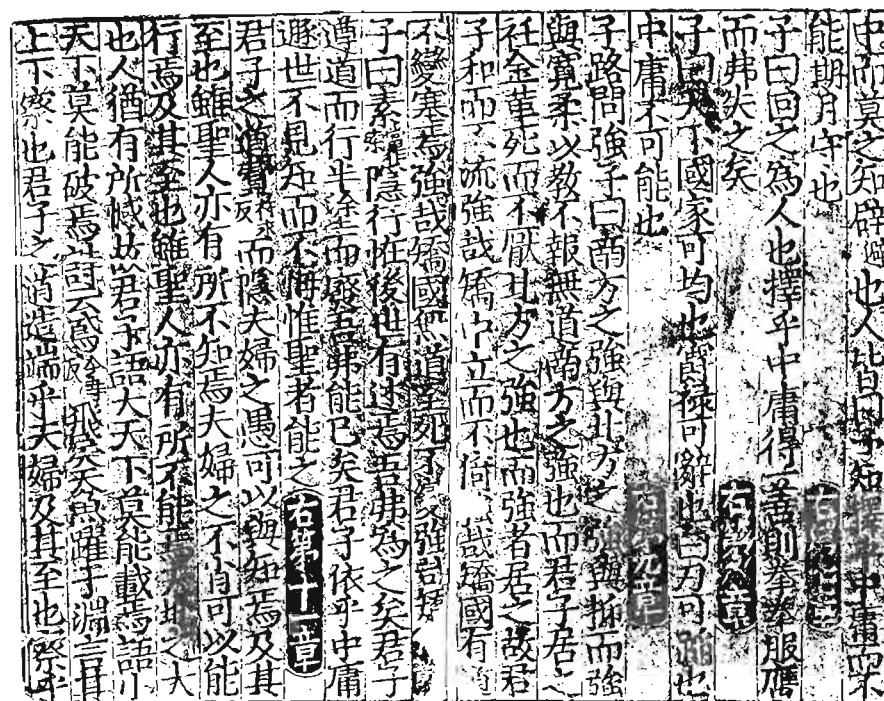 中而莫之知辟避也人皆曰予知擇乎中庸而不
能期月守也 右第七章
子曰回之為人也擇乎中庸得一善則拳拳服膺
而弗失之矣 右第八章
子曰天下國家可均也爵祿可辭也白刃可蹈也
中庸不可能也 右第九章
子路問強子曰南方之強與北方之強與抑而強
與寬柔以教不報無道南方之強也而君子居之
衽金革死而不厭北方之強也而強者居之故君
子和而不流強哉矯中立而不倚強哉矯國有道
不變塞焉強哉矯國無道至死不變強哉矯
子曰素隱行怪後世有述焉吾弗為之矣君子
遵道而行半塗而廢吾弗能已矣君子依乎中庸
遯世不見知而不悔惟聖者能之 右第十一章
君子之道費符味反而隱夫婦之愚可以與知焉及其
至也雖聖人亦有所不知焉夫婦之不肖可以能
行焉及其至也雖聖人亦有所不能焉天地之大
也人猶有所憾故君子語大天下莫能載焉語小
天下莫能破焉詩云鳶余專反飛戾天魚躍于淵言其
上下察也君子之道造端乎夫婦及其至也察乎